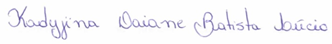 Kadyjina Daiane Batista Lúcio